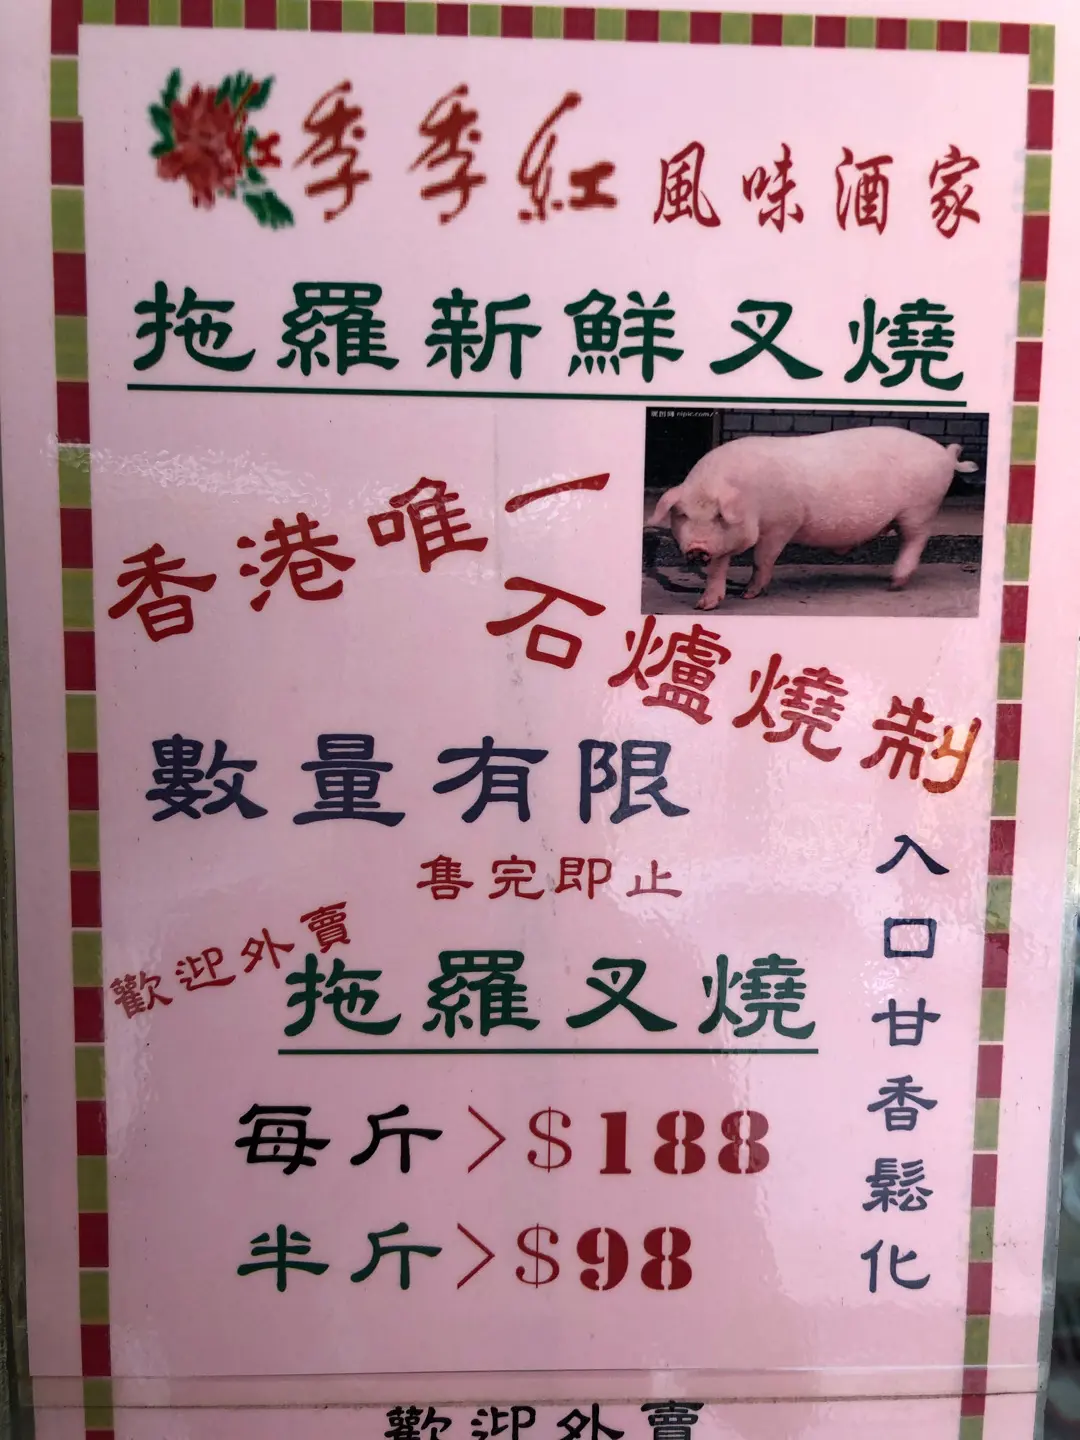 季季紅風味酒家
拖羅新鮮叉燒
nipic.com/
香港唯一
石爐燒制
數量有限
售完即止
入口甘香鬆化
歡迎外賣
拖羅叉燒
每斤>$188
半斤>$98
歡迎外賣